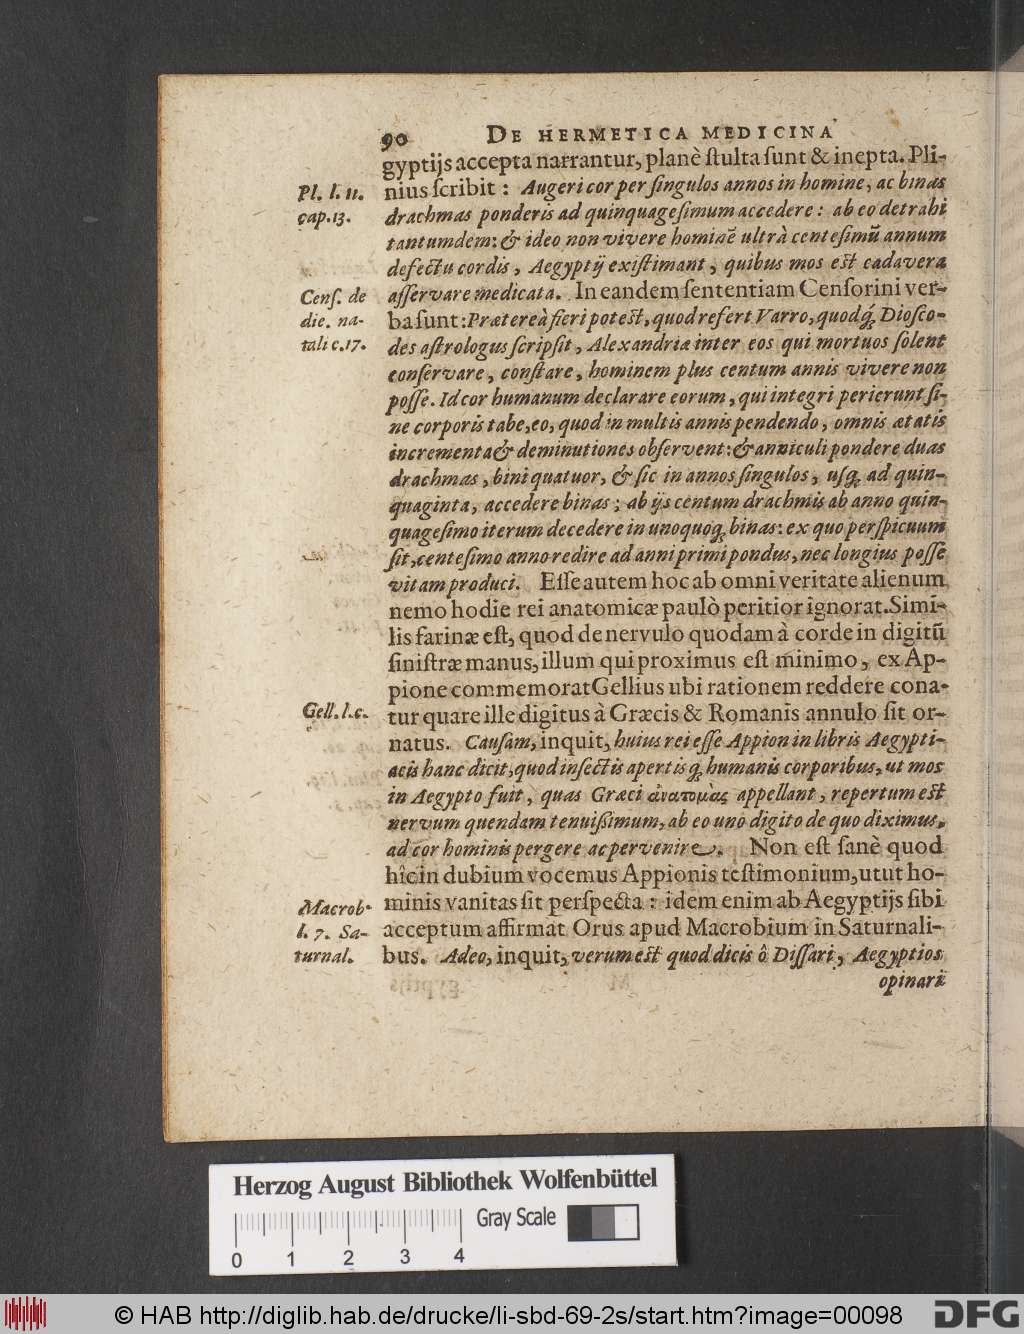 90 DE HERMETICA MEDICINA
gyptijs accepta narrantur, planè ſtulta ſunt & inepta. Pli-
Pl. l. 11. nius ſcribit : Augeri cor per ſingulos annos in homine, ac binas
cap. 13. drachmas ponderis ad quinquageſimum accedere : ab eo detrahi
tantumdem: & ideo non vivere hominē ultrà centeſimū annum
defectu cordis, Aegyptij exiſtimant, quibus mos eſt cadavera
Cenſ. de aſſervare medicata. In eandem ſententiam Cenſorini ver-
die. na- ba ſunt: Præterea fieri poteſt, quod refert Varro, quodq́; Dioſco-
tali c. 17. des aſtrologus ſcripſit, Alexandriæ inter eos qui mortuos ſolent
conſervare, conſtare, hominem plus centum annis vivere non
poſſe. Id cor humanum declarare eorum, qui integri perierunt ſi-
ne corporis tabe, eo, quod in multis annis pendendo, omnis ætatis
incrementa & deminutiones obſervent: & anniculi pondere duas
drachmas, bini quatuor, & ſic in annos ſingulos, uſq; ad quin-
quaginta, accedere binas ; ab ijs centum drachmis ab anno quin-
quageſimo iterum decedere in unoquoq; binas: ex quo perſpicuum
ſit, centeſimo anno redire ad anni primi pondus, nec longius poſſe
vitam produci. Eſſe autem hoc ab omni veritate alienum
nemo hodie rei anatomicæ paulò peritior ignorat. Simi-
lis farinæ eſt, quod de nervulo quodam à corde in digitū
ſiniſtræ manus, illum qui proximus eſt minimo, ex Ap-
pione commemorat Gellius ubi rationem reddere cona-
Gell. l. c. tur quare ille digitus à Græcis & Romanis annulo ſit or-
natus. Cauſam, inquit, huius rei eſſe Appion in libris Aegypti-
acis hanc dicit, quod inſectis apertisq; humanis corporibus, ut mos
in Aegypto fuit, quas Græci ἀνατομὰς appellant, repertum eſt
nervum quendam tenuiſſimum, ab eo uno digito de quo diximus,
ad cor hominis pergere ac pervenire. Non eſt ſanè quod
hîc in dubium vocemus Appionis teſtimonium, utut ho-
Macrob. minis vanitas ſit perſpecta : idem enim ab Aegyptijs ſibi
l. 7. Sa- acceptum affirmat Orus apud Macrobium in Saturnali-
turnal. bus. Adeo, inquit, verum eſt quod dicis ô Diſſari, Aegyptios
opinari
Herzog August Bibliothek Wolfenbüttel
Gray Scale
0 1 2 3 4
© HAB http://diglib.hab.de/drucke/li-sbd-69-2s/start.htm?image=00098
DFG